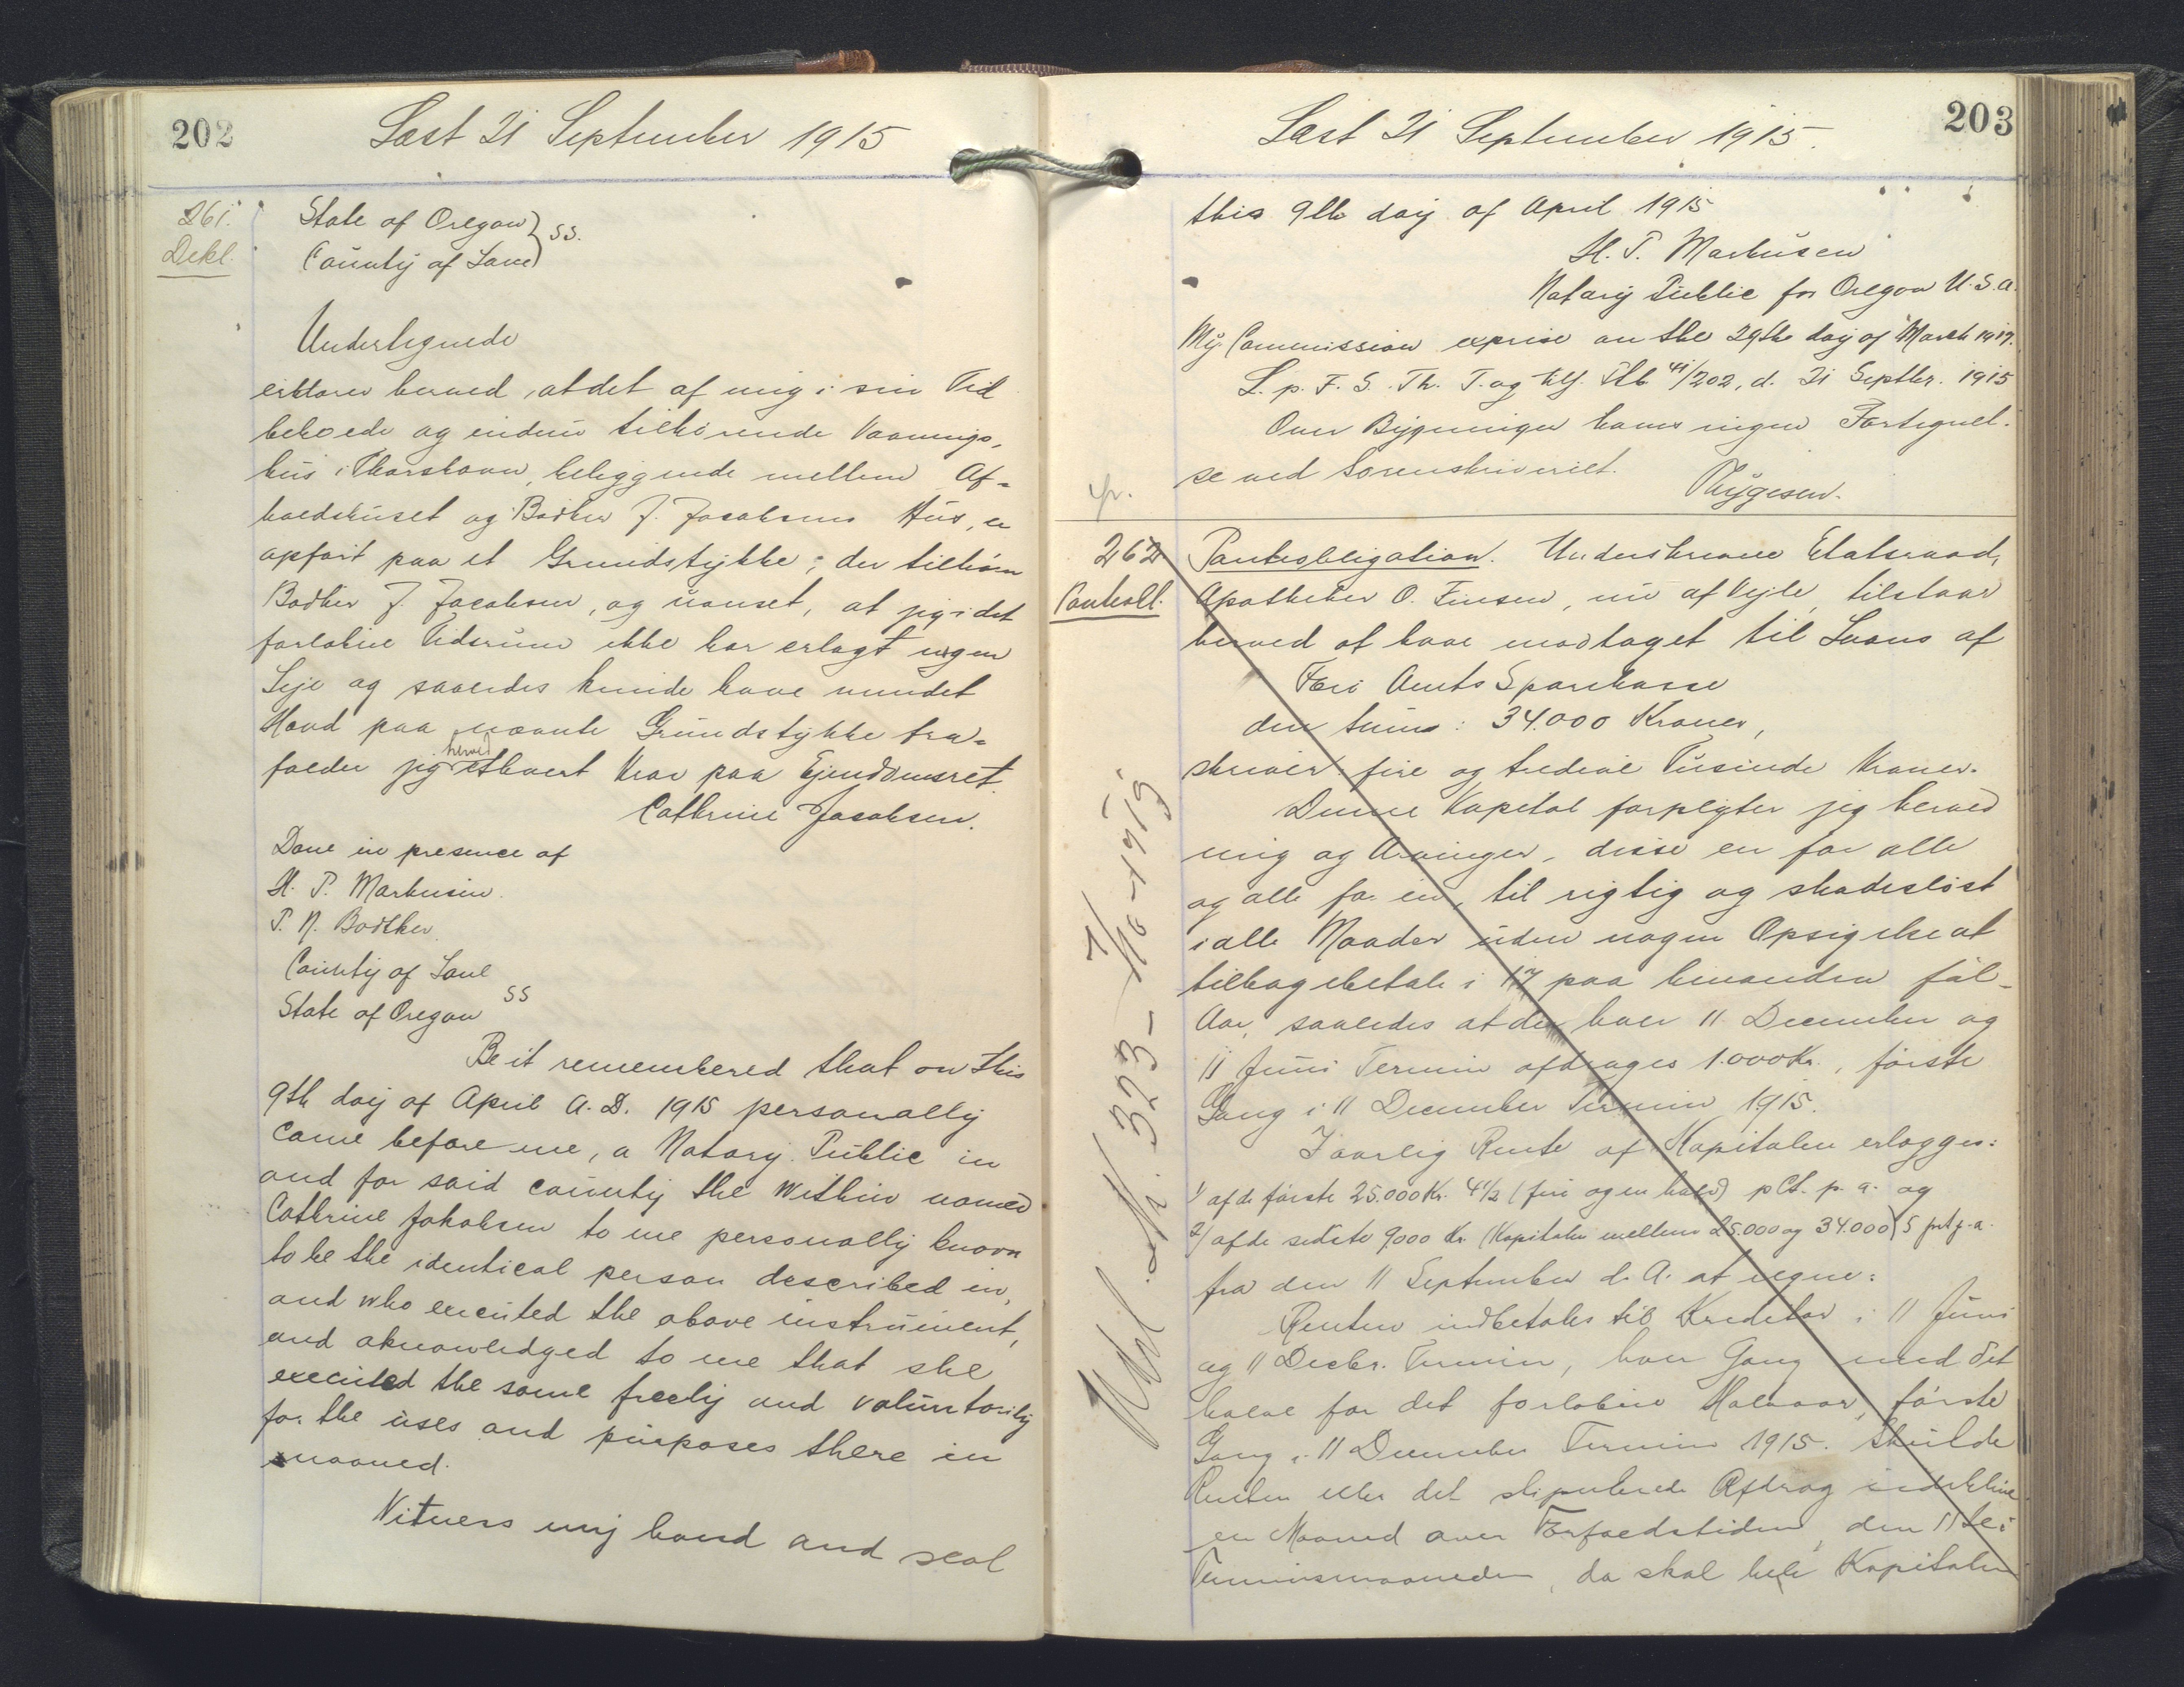 202
Læst 21 September 1915
261.
Dekl.
State of Oregon } ss.
County of Lane
Undertegnede
erklærer herved, at det af mig i sin Tid
beboede og endnu tilhørende Vaanings-
hus i Thorshavn, beliggende mellem Af-
holdshuset og Bødker J. Jacobsens Hus, er
opført paa et Grundstykke, der tilhører
Bødker J. Jacobsen, og uanset, at jeg i det
forløbne Tidsrum ikke har erlagt nogen
Leje og saaledes kunde have vundet
Hævd paa nævnte Grundstykke fra-
falder jeg herved ethvert Krav paa Ejendomsret.
Cathrine Jacobsen.
Done in presence of
H. P. Markusen.
P. N. Bodtker.
County of Lane
State of Oregon ss
Be it remembered that on this
9th day of April A.D. 1915 personally
came before me, a Notary Public in
and for said county the within named
Cathrine Jakobsen to me personally known
to be the identical person described in,
and who executed the above instrument,
and aknowledged to me that she
executed the same freely and voluntarily
for the uses and purposes there in
named.
Witness my hand and seal
203
Læst 21 September 1915.
this 9th day of April 1915
H. P. Markusen
Notary Public for Oregon U.S.A.
My Commission exprise on the 29the day of March 1917.
L. p. F. S. Th. T. og 41/202, d. 21 Septbr. 1915
Over Bygningen haves ingen Fortegnel-
se ved Sorenskriveriet.
Thygesen.
262
Pantobl.
Pantobligation. Underskrevne Etatsraad,
Apotheker O. Finsen, nu af Vejle, tilstaar
herved at have modtaget til Laans af
Færø Amts Sparekasse
den Sum: 34.000 Kroner,
skriver fire og tredive Tusinde Kroner.
Denne Kapital forpligter jeg herved
mig og Arvinger, disse en for alle
og alle for en, til rigtig og skadesløst
i alle Maader uden nogen Opsigelse at
tilbagebetale i 17 paa hinanden føl-
Aar, saaledes at der hver 11 December og
11 Juni Termin afdrages 1.000 Kr., første
Gang i 11 December Termin 1915.
I aarlig Rente af Kapitalen erlægges:
1/ af de første 25.000 Kr. 4 1/2 (fire og en halv) pCt. p. a. og
2/ af de sidste 9000 Kr. (Kapitalen mellem 25.000 og 34.000) 5 pct p. a.
fra den 11 September d. A. at regne.
Renten indbetales til Kreditor i 11 Juni
og 11 Decbr. Termin, hver Gang med det
halve for det forløbne Halvaar, første
Gang i 11 December Termin 1915. Skulde
Renten eller det stipulerede Afdrag indeblive
en Maaned over Forfaldstiden, den 11te i
Terminsmaaneden, da skal hele Kapitalen
Udsl. Nr. 323 - 7/10-1919